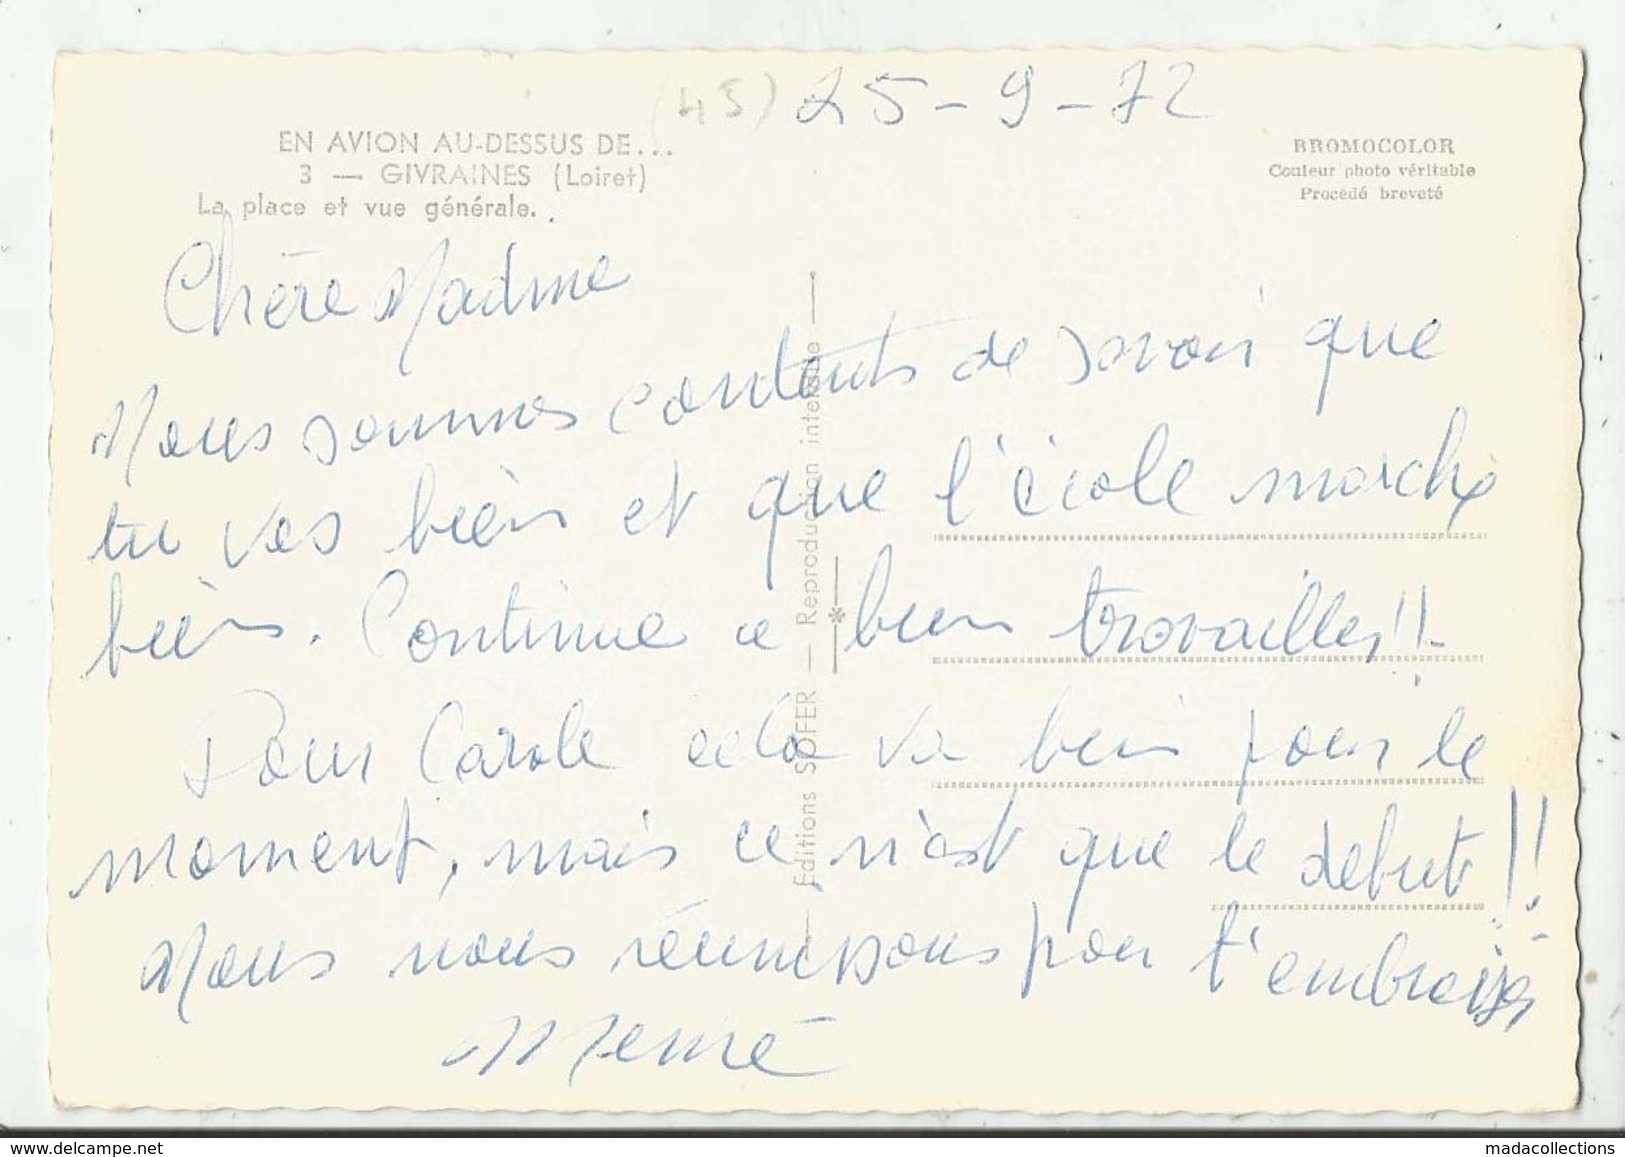 (45) 25-9-72
EN AVION AU-DESSUS DE...
3 — GIVRAINES (Loiret)
La place et vue générale.
BROMOCOLOR
Couleur photo véritable
Procédé breveté
Chère Nadine
Nous sommes contents de savoir que
tu vas bien et que l'école marche
bien. Continue a bien travailler!!
Pour Carole cela va bien pour le
moment, mais ce n'est que le debut!!
Nous nous réunissons pour t'embrasser
Mémé
— Editions SOFER — Reproduction interdite —
www.delcampe.net
madacollections